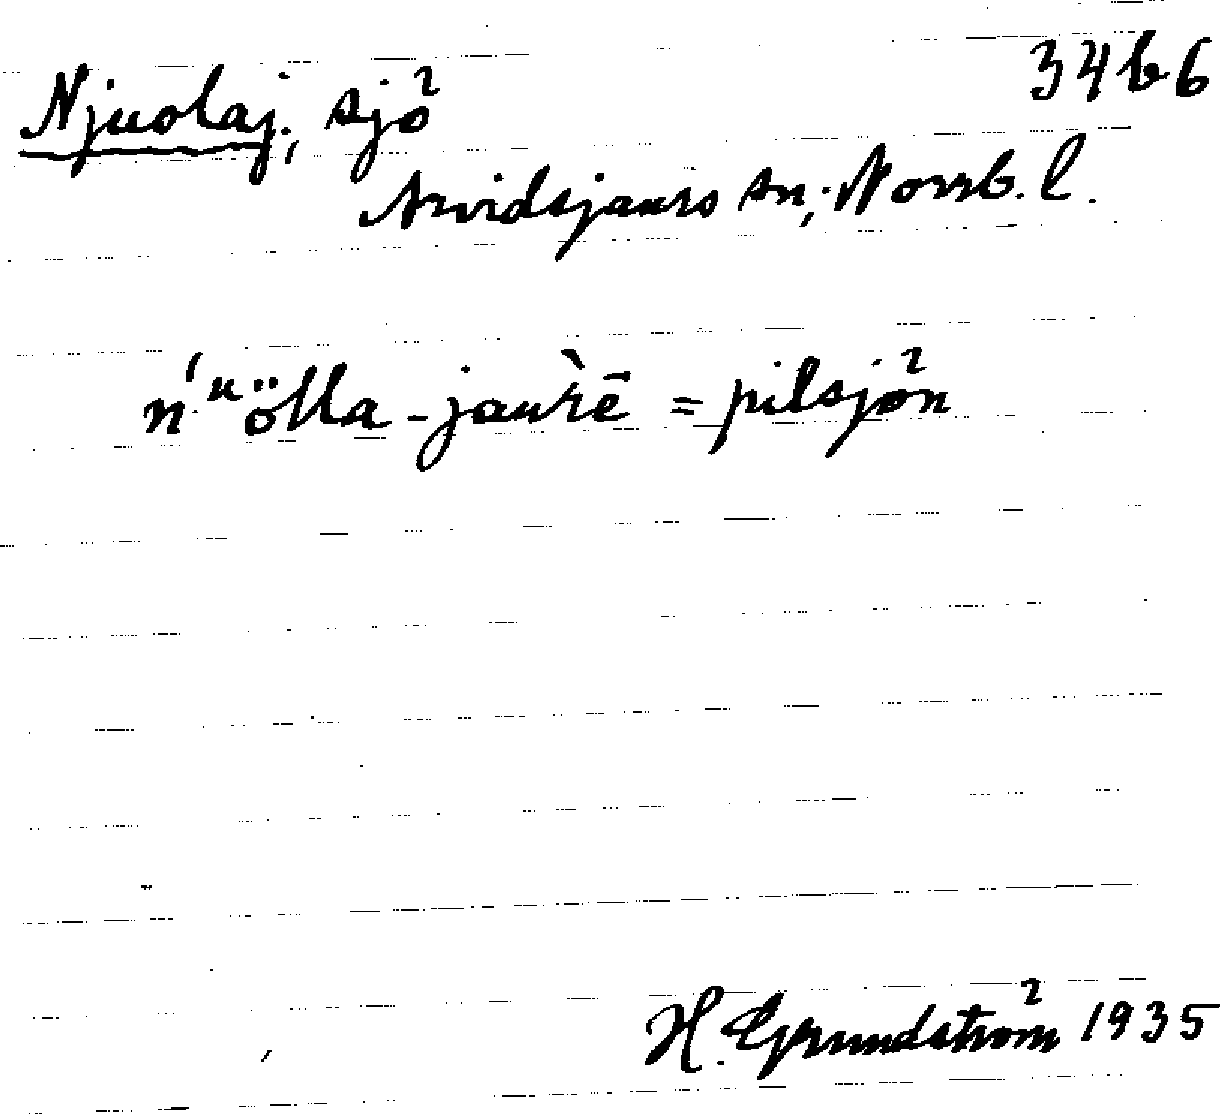 Njuolaj, sjö 34b6
Arvidsjaurs sn, Norrb. l.
ń ᵘölla-jaùrē = pilsjön
H. Grundström 1935